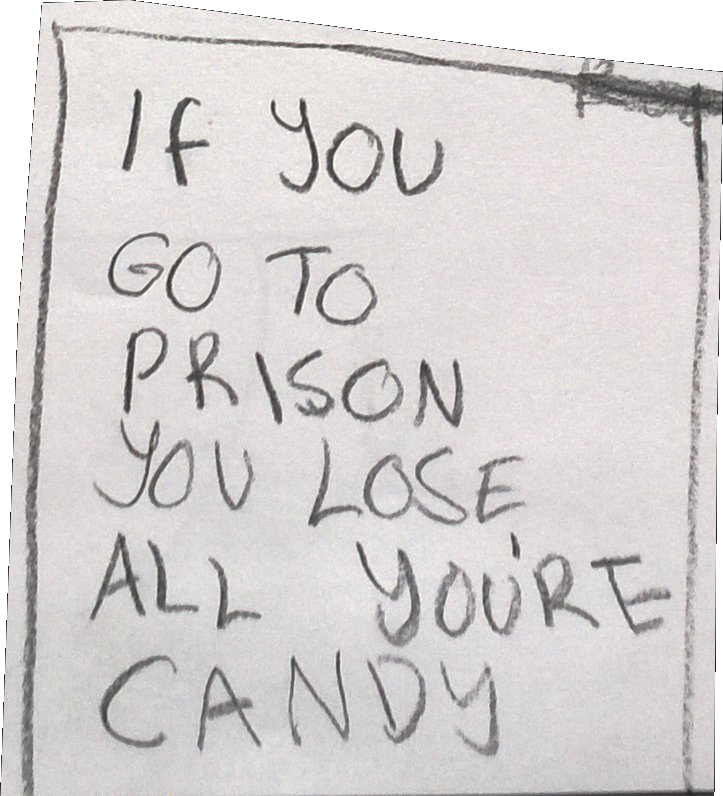 If YOU
GO TO
PRISON
YOU LOSE
ALL YOU'RE
CANDY